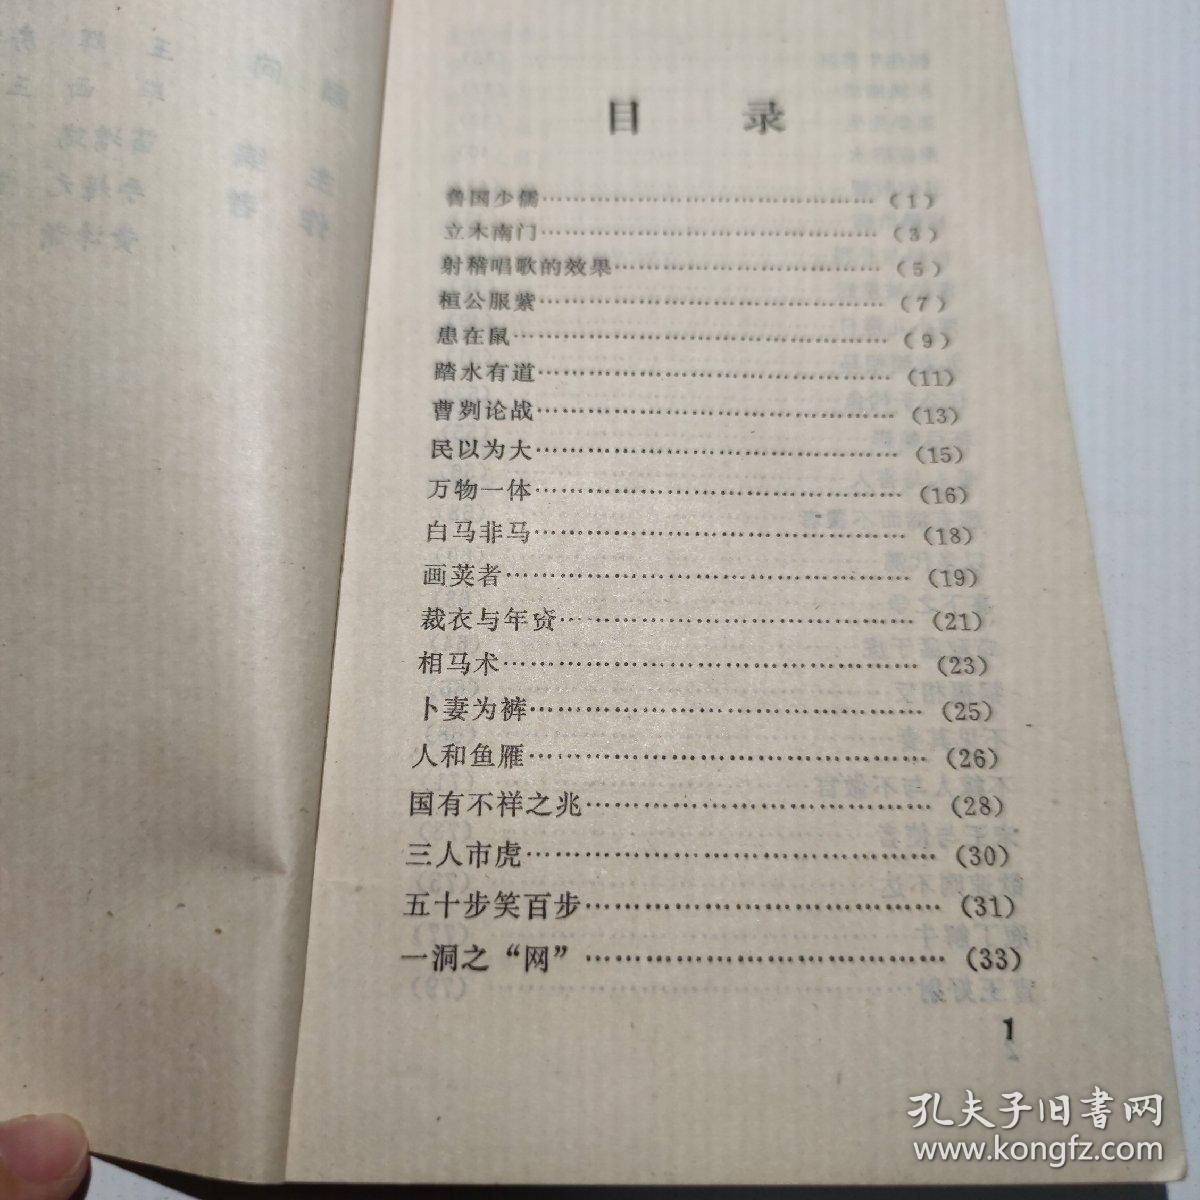 目 录
鲁国少儒……………………………………(1)
立木南门……………………………………(3)
射稽唱歌的效果……………………………(5)
桓公服紫……………………………………(7)
患在鼠………………………………………(9)
踏水有道……………………………………(11)
曹刿论战……………………………………(13)
民以为大……………………………………(15)
万物一体……………………………………(16)
白马非马……………………………………(18)
画荚者………………………………………(19)
裁衣与年资…………………………………(21)
相马术………………………………………(23)
卜妻为裤……………………………………(25)
人和鱼雁……………………………………(26)
国有不祥之兆………………………………(28)
三人市虎……………………………………(30)
五十步笑百步………………………………(31)
一洞之“网”………………………………(33)
1
孔夫子旧书网
www.kongfz.com